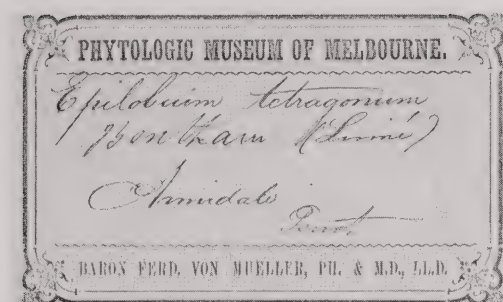 PHYTOLOGIC MUSEUM OF MELBOURNE.
Epilobium tetragonum
Bentham (Linné)
Armidale
Perrott
BARON FERD. VON MUELLER, PH. & M.D., LL.D.